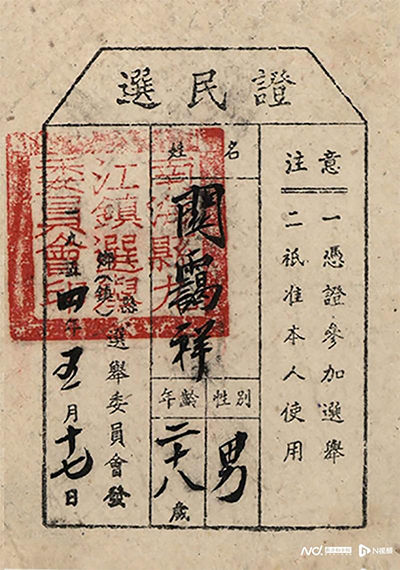 選民證
注意
一憑證參加選舉
二祇准本人使用
姓名
関靄祥
性別
男
年齡
二十八歲
縣
鄉(鎮)
選舉委員會發
一九五四年五月十七日
南海縣九
江鎮選舉
委員會印
N视频